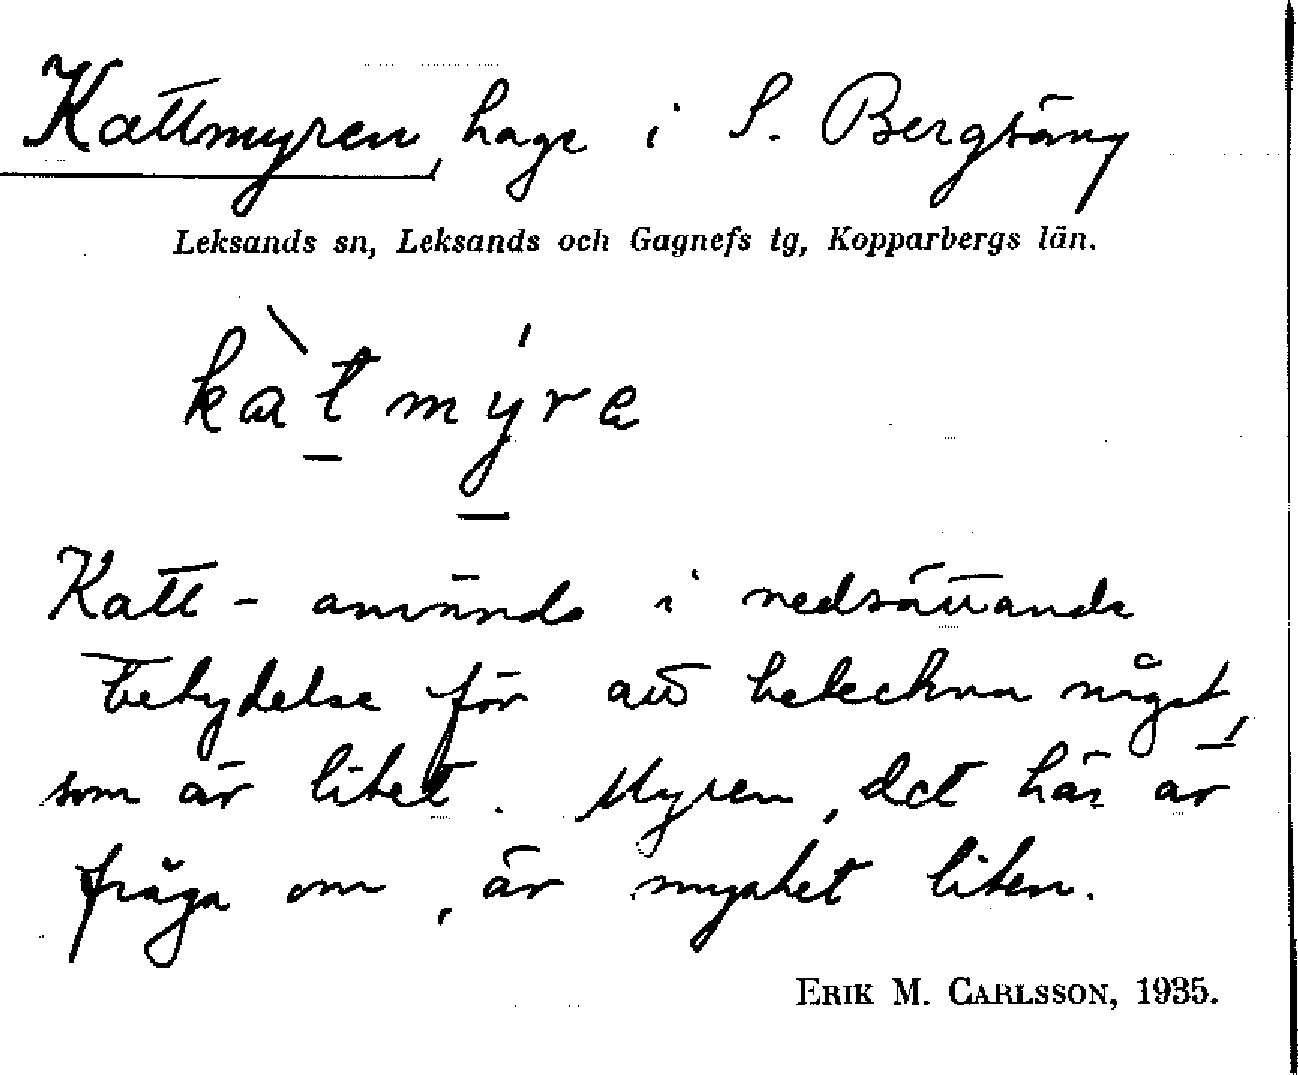 Kattmyren, hage i S. Bergsäng
Leksands sn, Leksands och Gagnefs tg, Kopparbergs län.
Katt- användes i nedsättande
betydelse för att beteckna något,
som är litet. Myren, det här är
fråga om, är mycket liten.
ERIK M. CARLSSON, 1935.